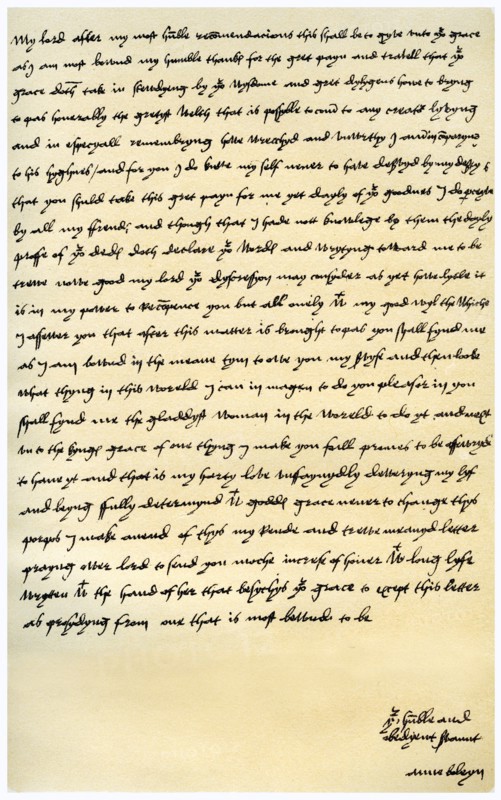 My lord after my most hũble recõmendacions this shall be to gyve unto yor grace
as I am most bownd my humble thanks for the gret payn and travell that yor
grace doth take in stewdyeng by yor wysdome and gret dylygens howe to bryng
to pas honerably the gretyst welth that is possyble to cum to any creator lyvyng
and in especyall remembryng howe wrecchyd and unwrthy I am in comparyng
to his hyghnes / and for you I do knowe my self never to have deservyd by my desertys
that you shuld take this gret payn for me yet dayly of yor goodnes I do perceyve
by all my ffrends and though that I hade nott knowlege by them the dayly
proffe of yor deds doth declare yor words and wrytyng toward me to be
trewe nowe good my lord yor dyscressyon may consyder as yet howe lytle it
is in my power to recõpence you but all onely wt my good wyl the whiche
I assewer you that after this matter is brought to pas you shall fynd me
as I am bownd in the meane tym to owe you my servyse and then looke
what thyng in this woreld I can inmagen to do you pleasor in you
shall fynd me the gladdyst woman in the woreld to do yt and next
unto the kyngs grace of one thyng I make you full promes to be assewryd
to have yt and that is my harty love unfaynydly dewering my lyf
and beyng ffully determynd wt godds grace never to change thys
porpos I make anend of thys my reude and trewe meanyd letter
prayng ower lord to send you moche increse of honor wt long lyfe
wrytten wt the hand of her that besychys yor grace to except this letter
as prosydyng from one that is most bownde to be
yor hũble and
obedyent servant
anne boleyn